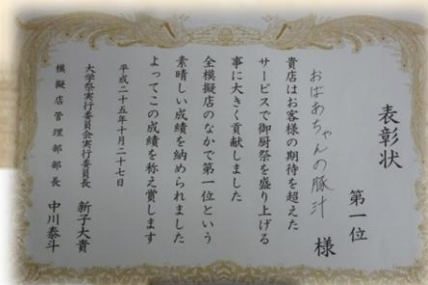 表彰状
第一位
おばあちゃんの豚汁 様
貴店はお客様の期待を超えた
サービスで御厨祭を盛り上げる
事に大きく貢献しました
全模擬店のなかで第一位という
素晴しい成績を納められました
よってこの成績を称え賞します
平成二十五年十月二十七日
大学祭実行委員会実行委員長 新子大貴
模擬店管理部部長 中川泰斗